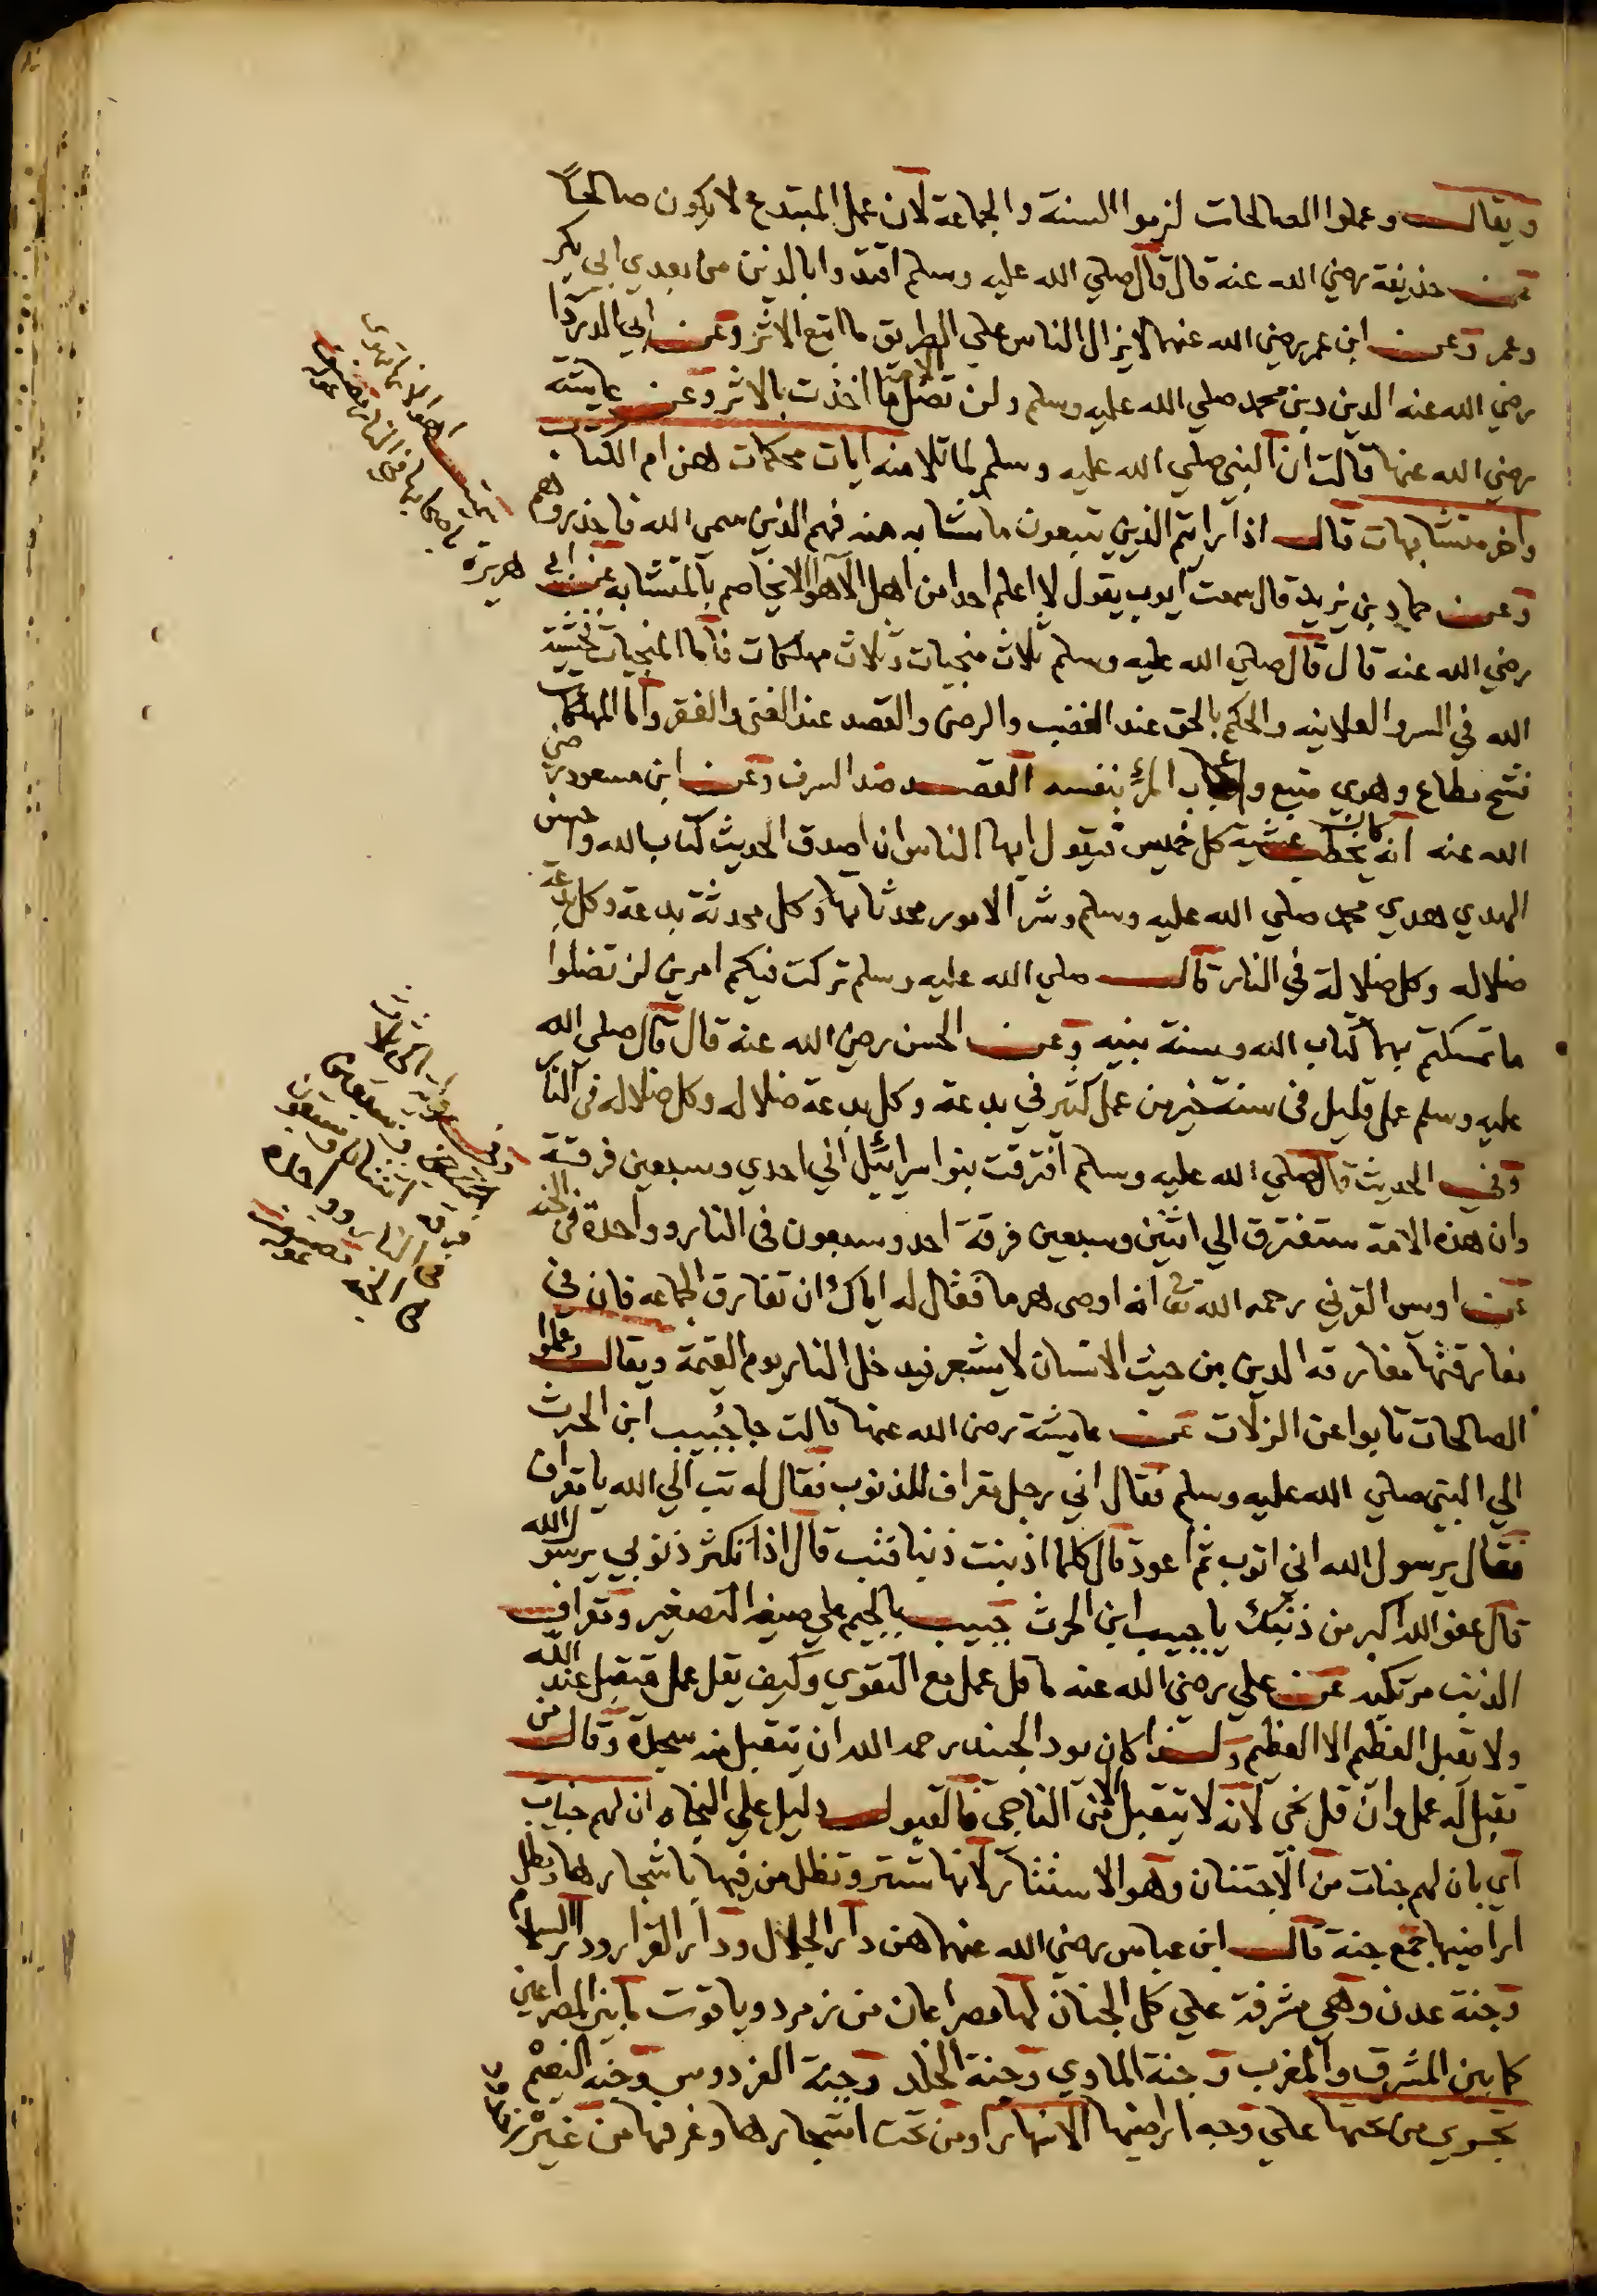 ويقال وعملوا الصالحات لزموا السنة والجماعة لان عمل المبتدع لا يكون صالحاً
عن حذيفة رضي الله عنه قال قال صلي الله عليه وسلم اقتدوا بالذين من بعدي ابي بكر
وعمر وعن ابن عمر رضي الله عنهما لا يزال الناس علي الطريق ما اتبع الاثر وعن ابي الدردا
رضي الله عنه الدين دين محمد صلي الله عليه وسلم ولن تضل الامة ما اخذت بالاثر وعن عايشة
رضي الله عنها قالت ان النبي صلي الله عليه وسلم لما تلا منه ايات محكمات هن ام الكتاب
واخر متشابهات قال اذا رايتم الذين يتبعون ما تشابه منه فهم الذين سمى الله فاحذروهم
وعن حماد بن يزيد قال سمعت ايوب يقول لا اعلم احدا من اهل الاهوا الا يخاصم بالمتشابه عن ابي هريرة
رضي الله عنه قال قال صلي الله عليه وسلم ثلاث منجيات وثلاث مهلكات فاما المنجيات فخشية
الله في السر والعلانيه والحكم بالحق عند الغضب والرضى والقصد عند الغنى والفقر واما المهلكات
فشح مطاع وهوي متبع واعجاب المرء بنفسه القصد ضد السرف وعن ابن مسعود رضي
الله عنه انه كان يخطب عشية كل خميس فيقول ايها الناس ان اصدق الحديث كتاب الله واحسن
الهدي هدي محمد صلي الله عليه وسلم وشر الامور محدثاتها وكل محدثة بدعة وكل بدعة
ضلاله وكل ضلالة في النار قال صلي الله عليه وسلم تركت فيكم امرين لن تضلوا
ما تمسكتم بهما كتاب الله وسنة نبيه وعن الحسن رضي الله عنه قال قال صلى الله
عليه وسلم عمل قليل في سنة خير من عمل كثير في بدعة وكل بدعة ضلاله وكل ضلاله في النار
وفي الحديث قال صلي الله عليه وسلم افترقت بنوا سرائيل الي احدي وسبعين فرقة
وان هذه الامة ستفترق الي اثنين وسبعين فرقة احد وسبعون في النار وواحدة في الجنه
عن اويس القرني رحمه الله تعا انه اوصى هرما فقال له اياك ان تفارق الجماعه فان في
مفارقتها مفارقه الدين من حيث الانسان لا يشعر فيدخل النار يوم القيمة ويقال وعملوا
الصالحات تابوا عن الزلات عن عايشة رضي الله عنها قالت جا جبيب ابن الحرث
الي النبي صلي الله عليه وسلم فقال اني رجل مقراف للذنوب فقال له تب الي الله يا مقراف
فقال يرسول الله اني اتوب ثم اعود قال كلما اذنبت ذنبا فتب قال اذا تكثر ذنوبي يرسول الله
قال عفو الله اكبر من ذنبك يا جبيب ابن الحرث جبيب بالجيم علي صيغه التصغير ومقراف
الذنب مرتكبه عن علي رضي الله عنه ما قل عمل مع التقوي وكيف يقل عمل متقبل عند الله
ولا يقبل العظيم الا العظيم ولهذا كان يود الجنيد رحمه الله ان يتقبل منه سجدة وقال من
تقبل له عمل وان قل نجى لانه لا يتقبل الا من الناجي فالقبول دليل علي النجاه ان لهم جنات
اي بان لهم جنات من الاجتنان وهو الاستتار لانها تستر وتظل من فيها باشجارها وتظل
اراضيها جمع جنة قال ابن عباس رضي الله عنهما هن دار الجلال ودار القرار ودار السلام
وجنة عدن وهي مشرفة علي كل الجنان لها مصراعان من زمرد وياقوت ما بين المصراعين
كما بين المشرق والمغرب وجنة الماوي وجنة الخلد وجنة الفردوس وجنة النعيم
تجري من تحتها علي وجه اراضيها الانهار اومن تحت اشجارها وغرفها من غير